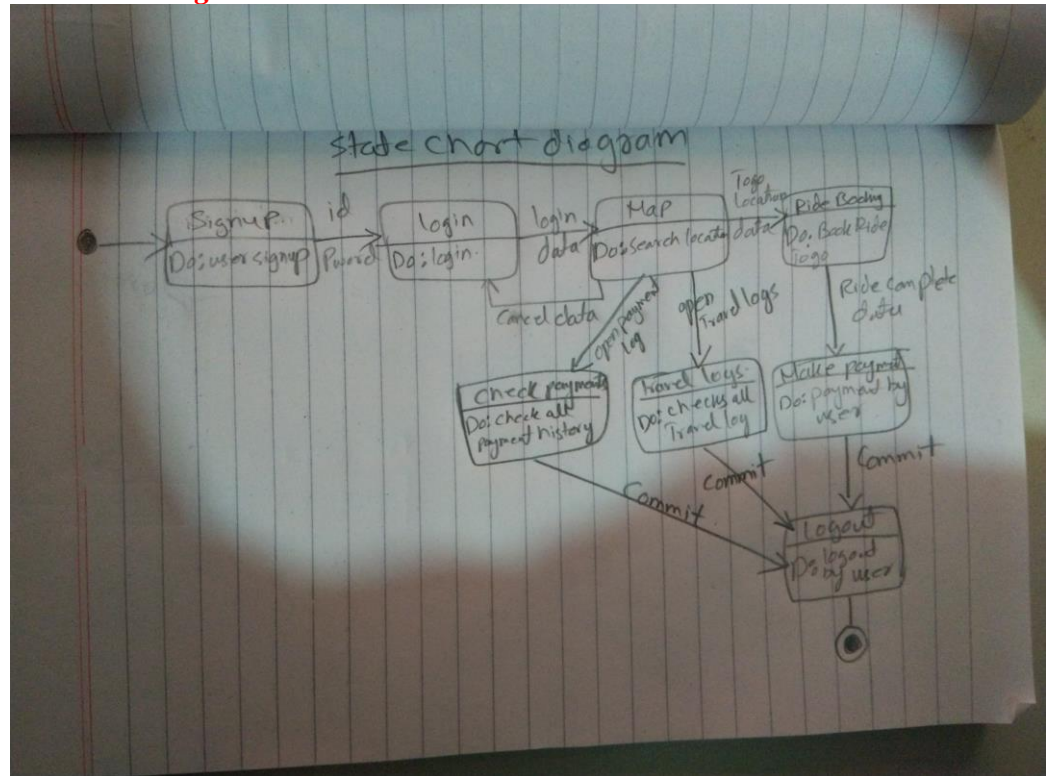 g
state chart diagram
Signup
Do: user signup
id
Pword
login
Do: login.
login
data
Map
Do: search locatio
Togo
Location
data
Ride Booking
Do: Book Ride
Togo
Cancel data
open payment
log
open
Travel logs
Ride complete
data
Check payments
Do: check all
payment history
Travel logs.
Do: checks all
Travel log
Make payment
Do: payment by
user
Commit
Commit
Commit
Logout
Do: logout
by user